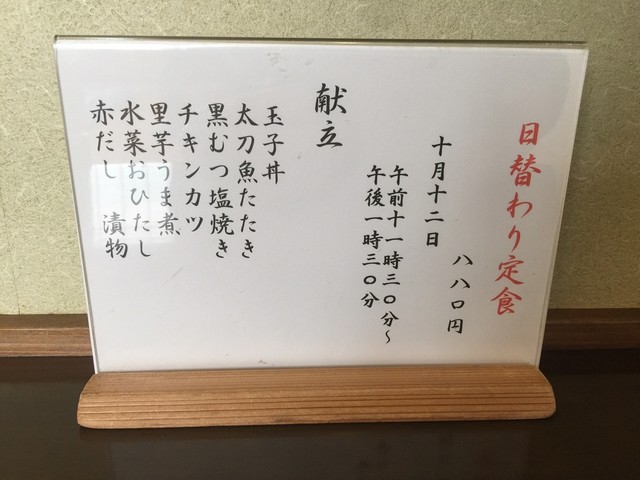 日替わり定食
八八〇円
十月十二日
午前十一時三〇分～
午後一時三〇分
献立
玉子丼
太刀魚たたき
黒むつ塩焼き
チキンカツ
里芋うま煮
水菜おひたし
赤だし 漬物